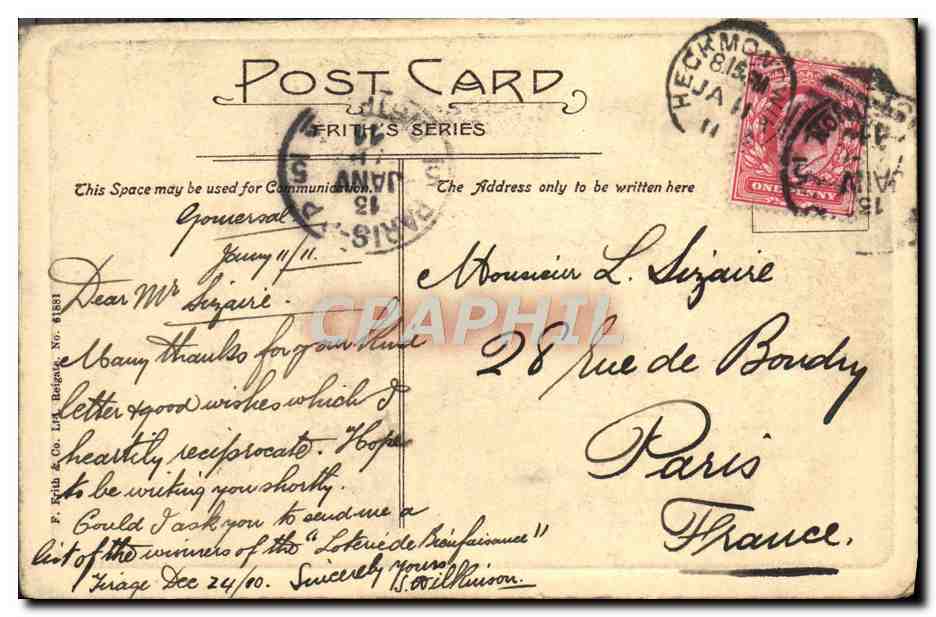 POST CARD
FRITH'S SERIES
HECKMONDWIKE
8.15 PM
JA 11
11
PARIS
13
JANV
11
ONE PENNY
This Space may be used for Communication.
The Address only to be written here
Gomersal
Jany 11/11.
Dear Mr Sizaire.
Many thanks for your kind
letter & good wishes which I
heartily reciprocate. Hope
to be writing you shortly.
Could I ask you to send me a
list of the winners of the "Loterie de Bienfaisance"
Tirage Dec 24/10. Sincerely yours
S. Wilkinson.
Monsieur L. Sizaire
28 rue de Boudry
Paris
France.
F. Frith & Co. Ltd. Reigate. No. 61881
CPAPHIL